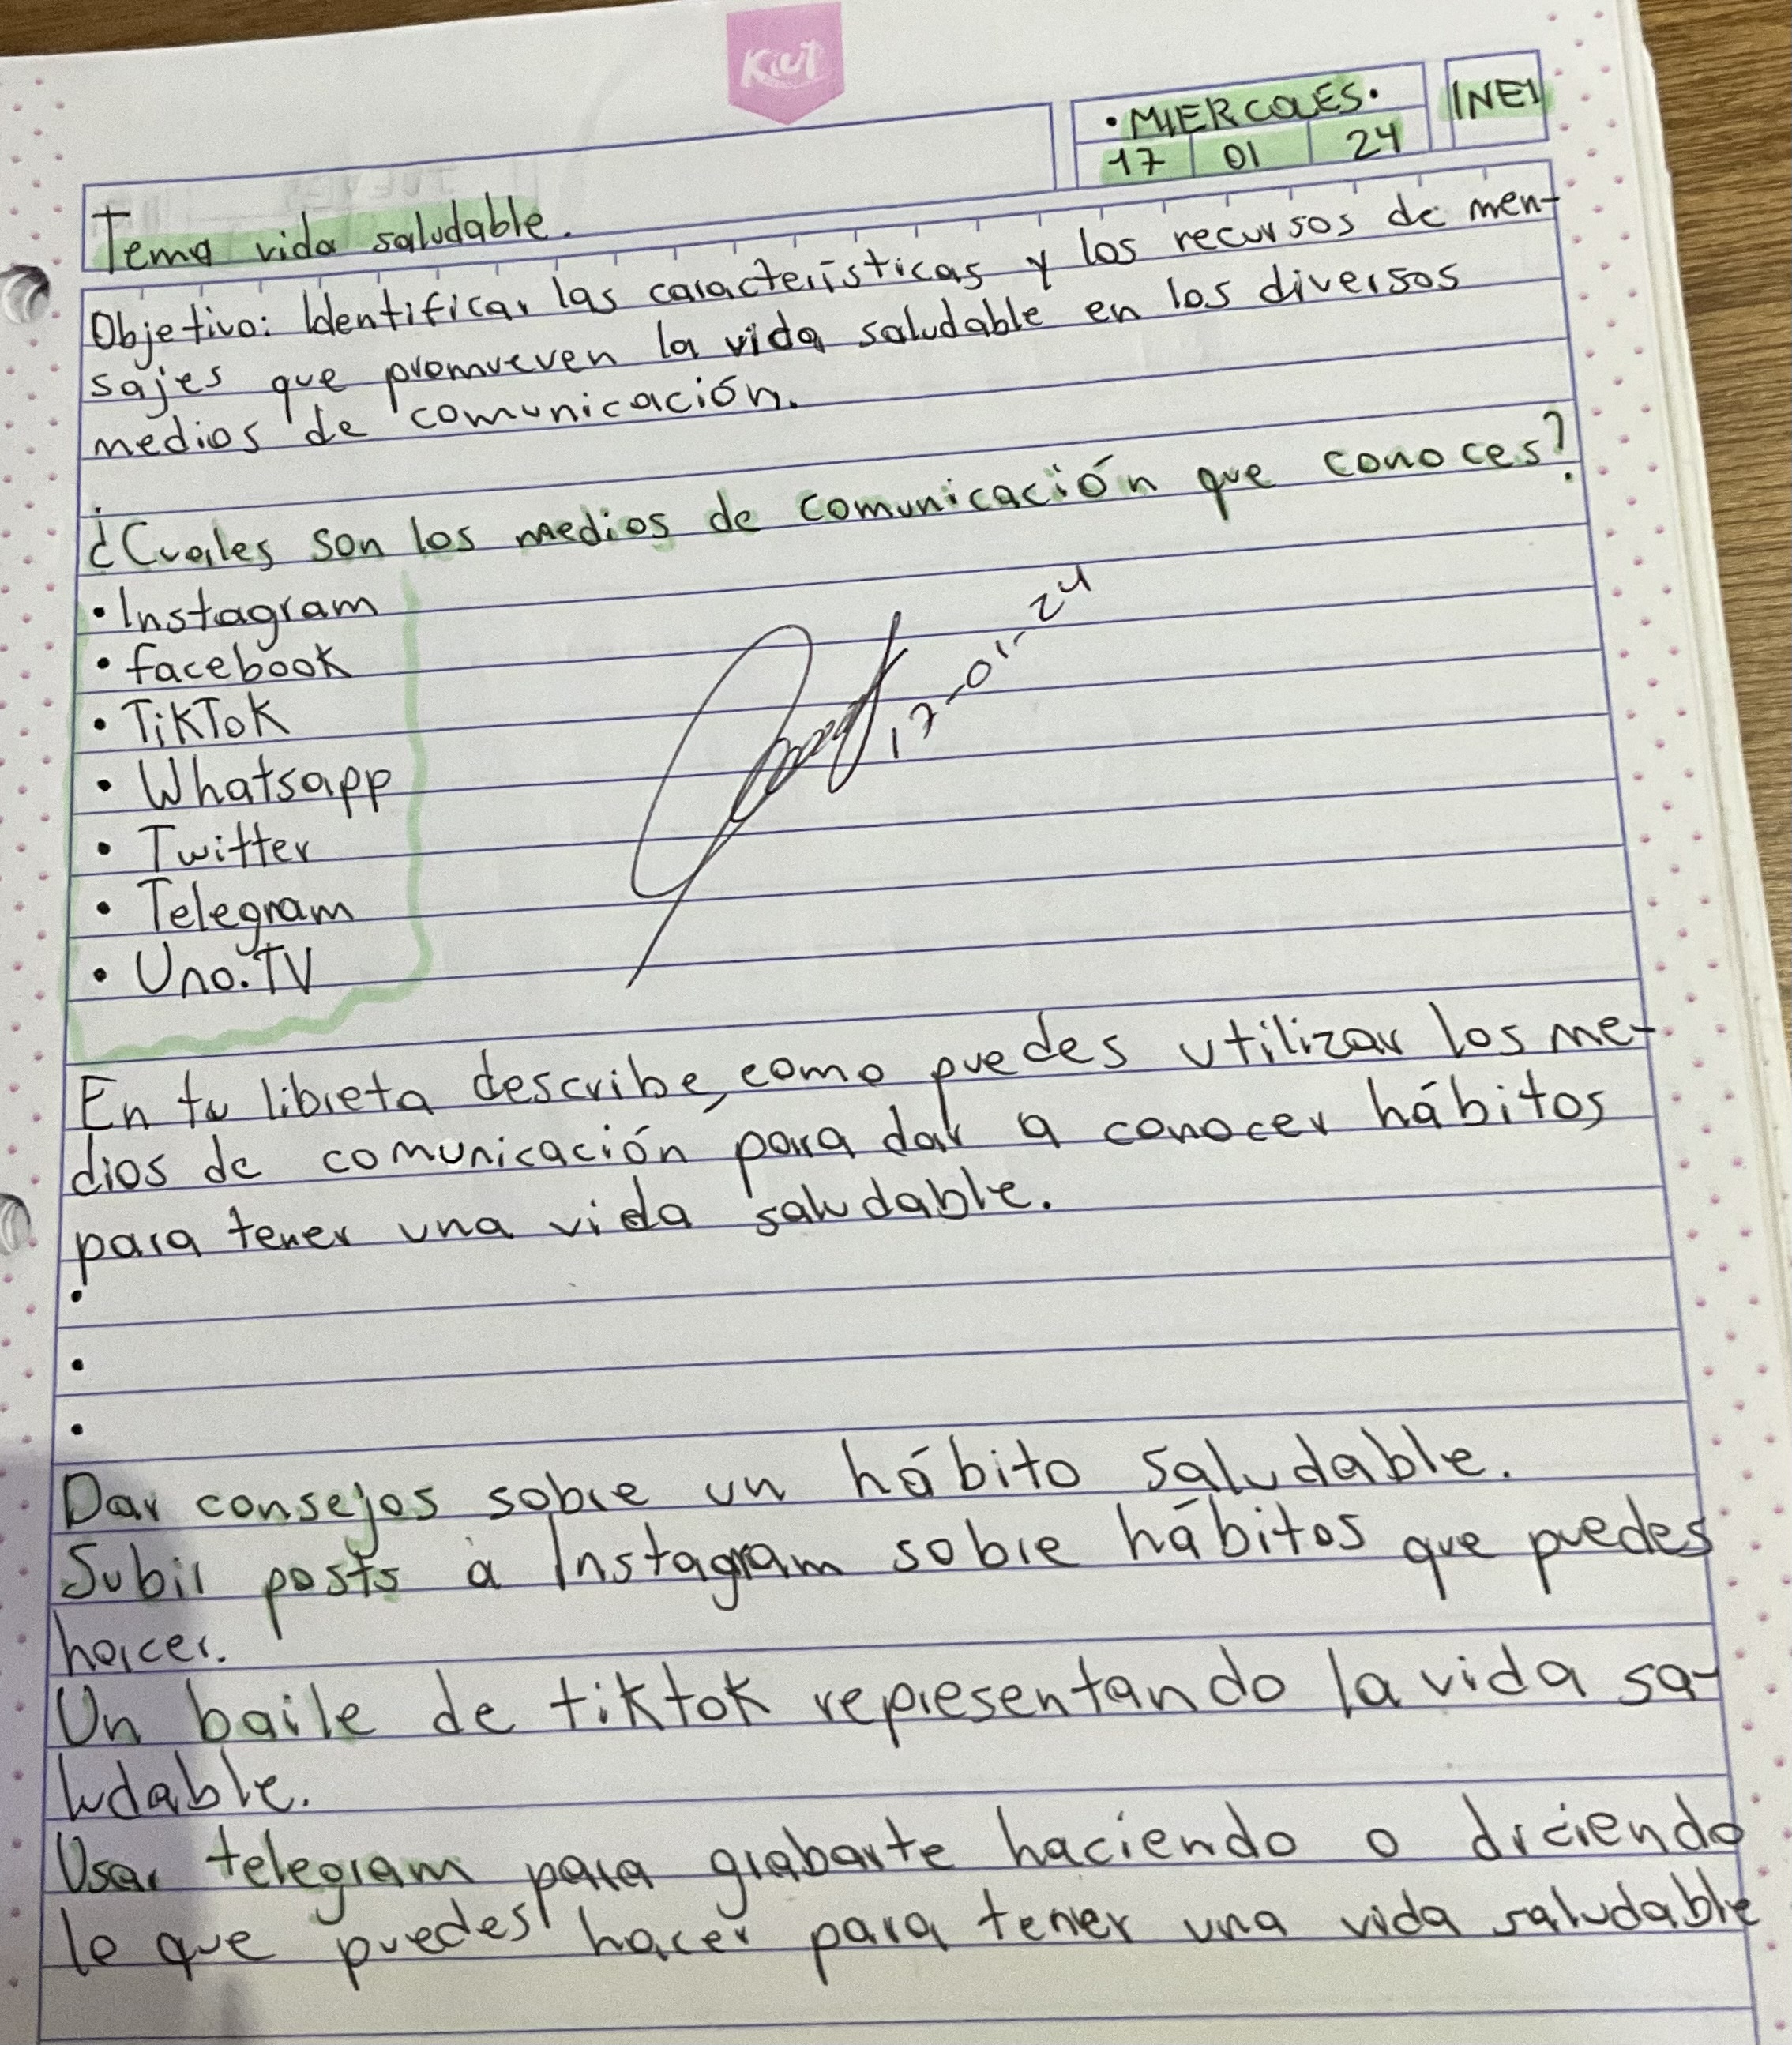 Kiut
• MIERCOLES •
INE1
17 01 24
Tema vida saludable.
Objetivo: Identificar las características y los recursos de men-
sajes que promueven la vida saludable en los diversos
medios de comunicación.
¿Cuales son los medios de comunicación que conoces?
• Instagram
• facebook
• TikTok
• Whatsapp
• Twitter
• Telegram
• Uno.TV
17-01-24
En tu libreta describe, como puedes utilizar los me-
dios de comunicación para dar a conocer hábitos
para tener una vida saludable.
•
•
•
Dar consejos sobre un hábito saludable.
Subir posts a Instagram sobre hábitos que puedes
hacer.
Un baile de tiktok representando la vida sa-
ludable.
Usar telegram para grabarte haciendo o diciendo
lo que puedes hacer para tener una vida saludable